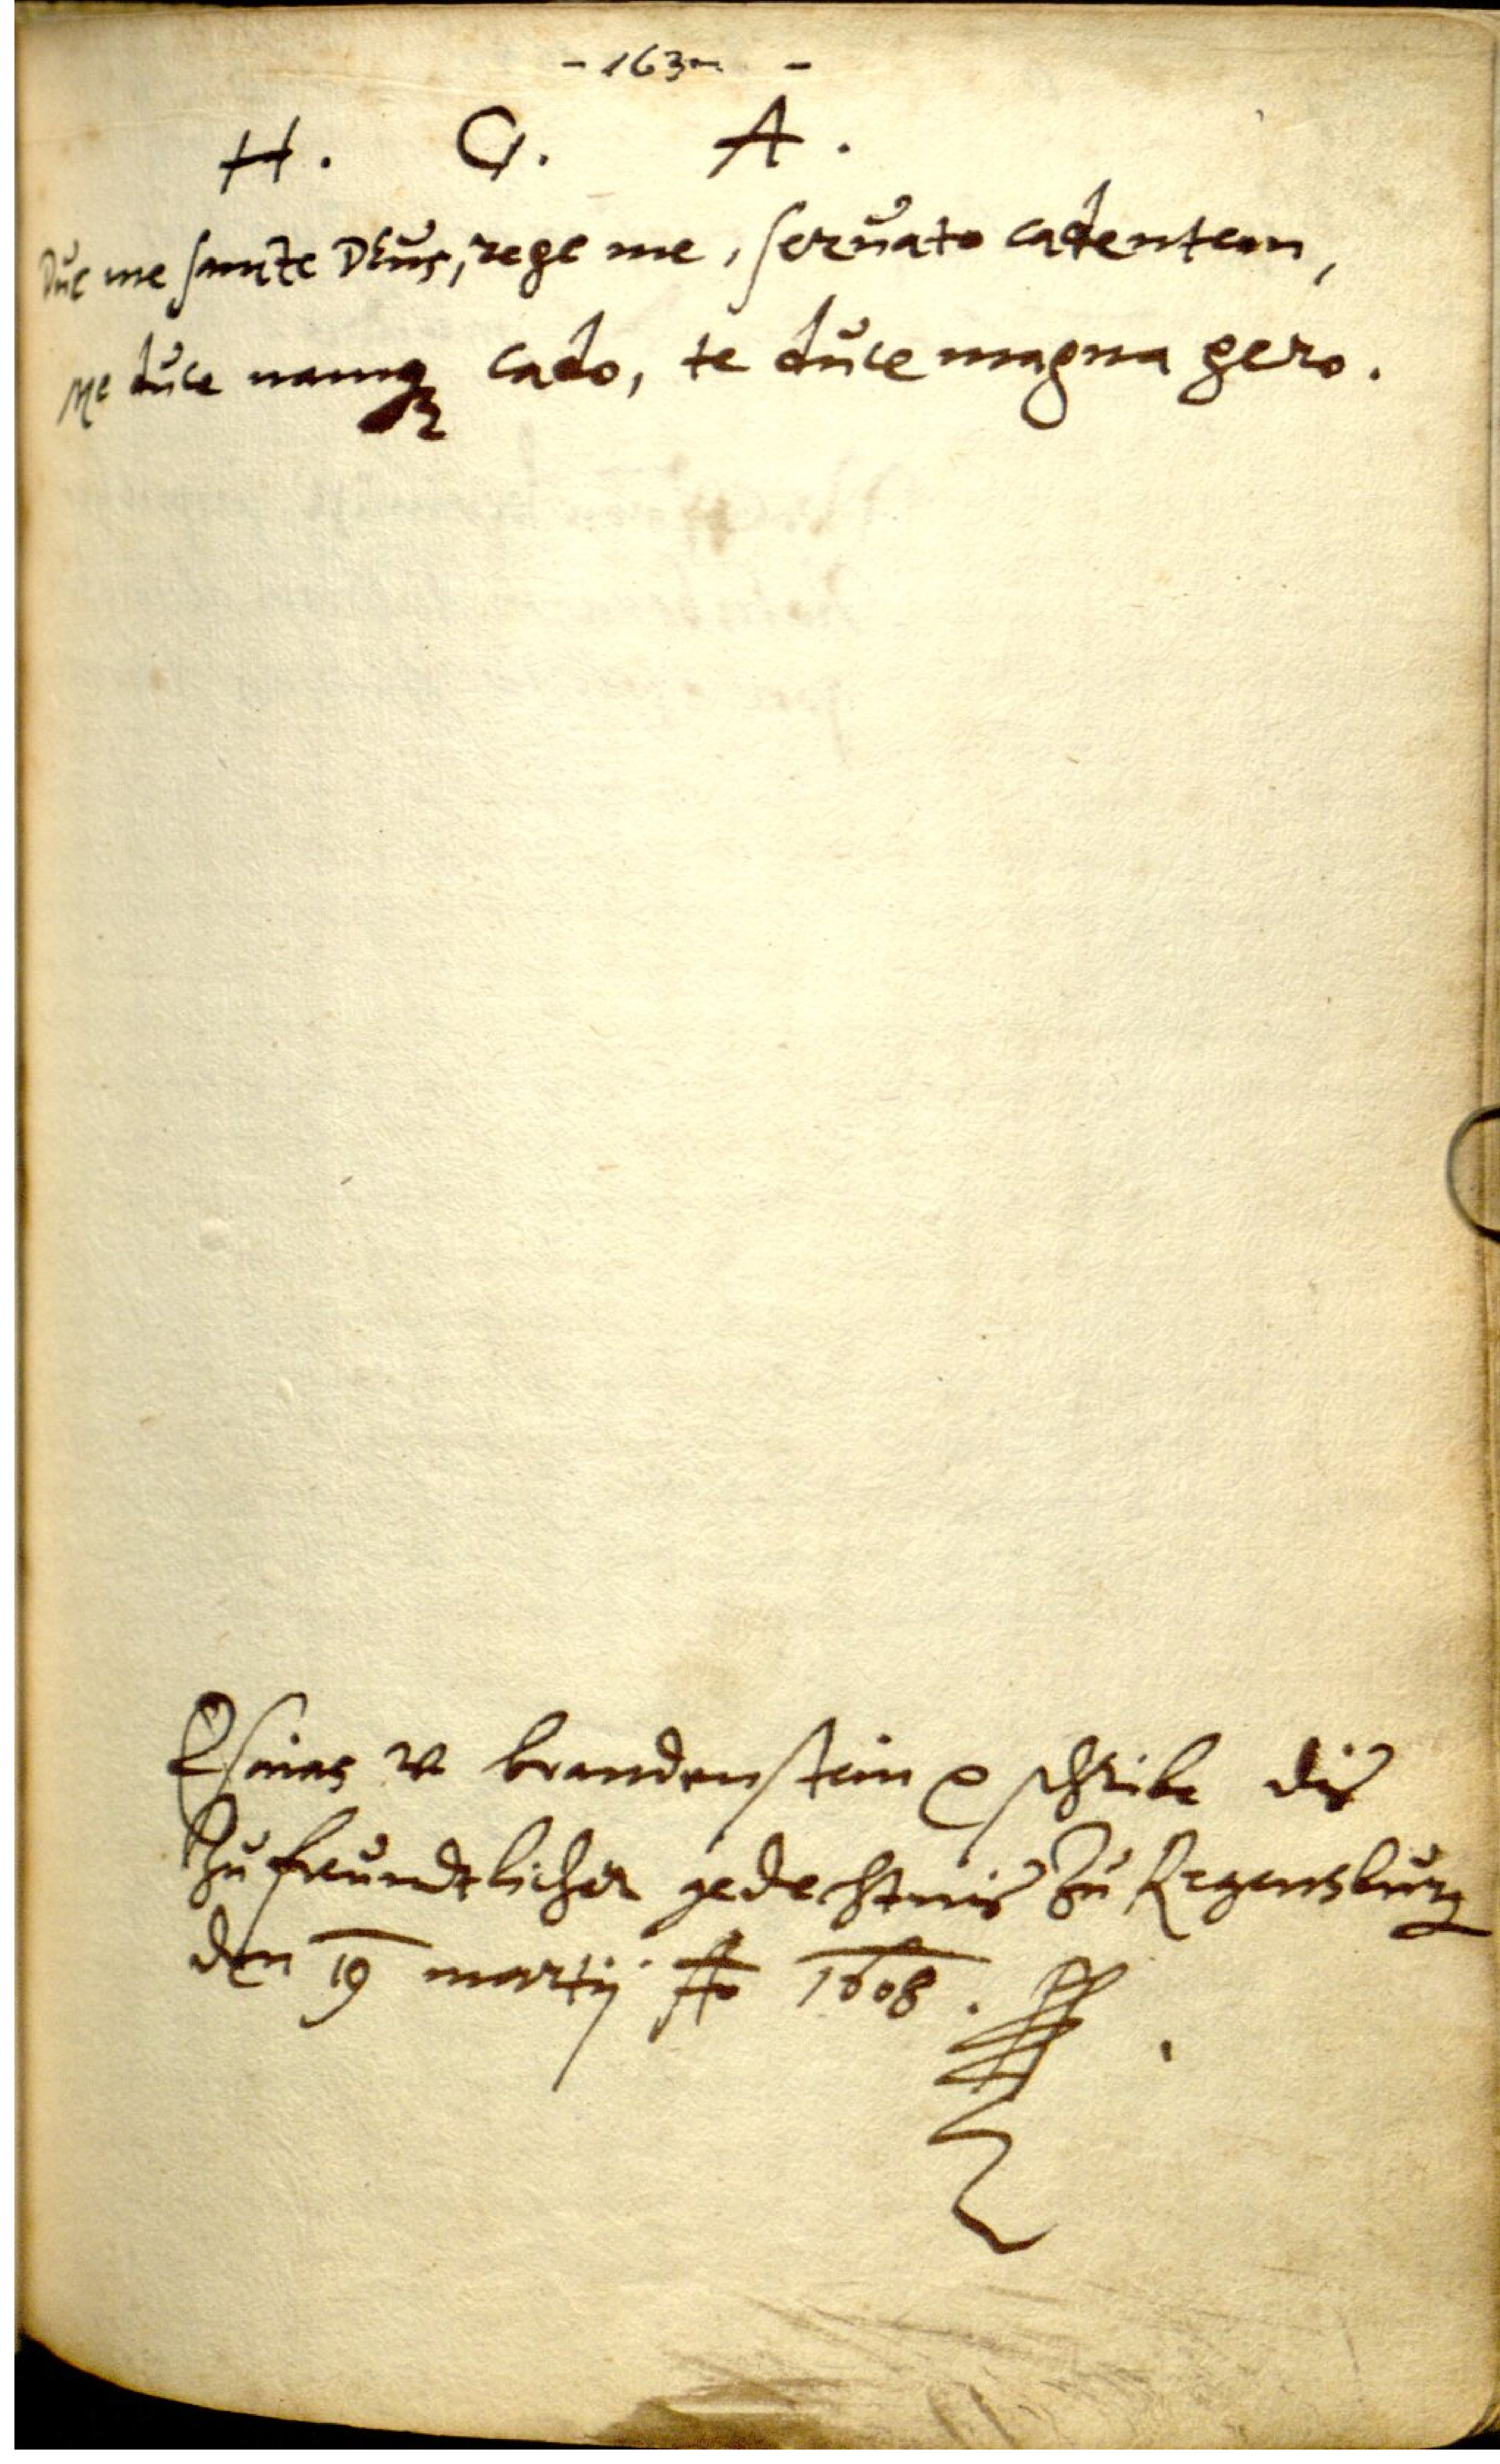 - 163r -
H. G. A.
Duc me sancte Deus, rege me, seruato cadentem,
Me duce namq3 cado, te duce magna gero.
Esaias v brandenstein schreibe dis
Zu freundtlicher gedechtnis Zu Regensburg
den 19 martij Ao 1608.